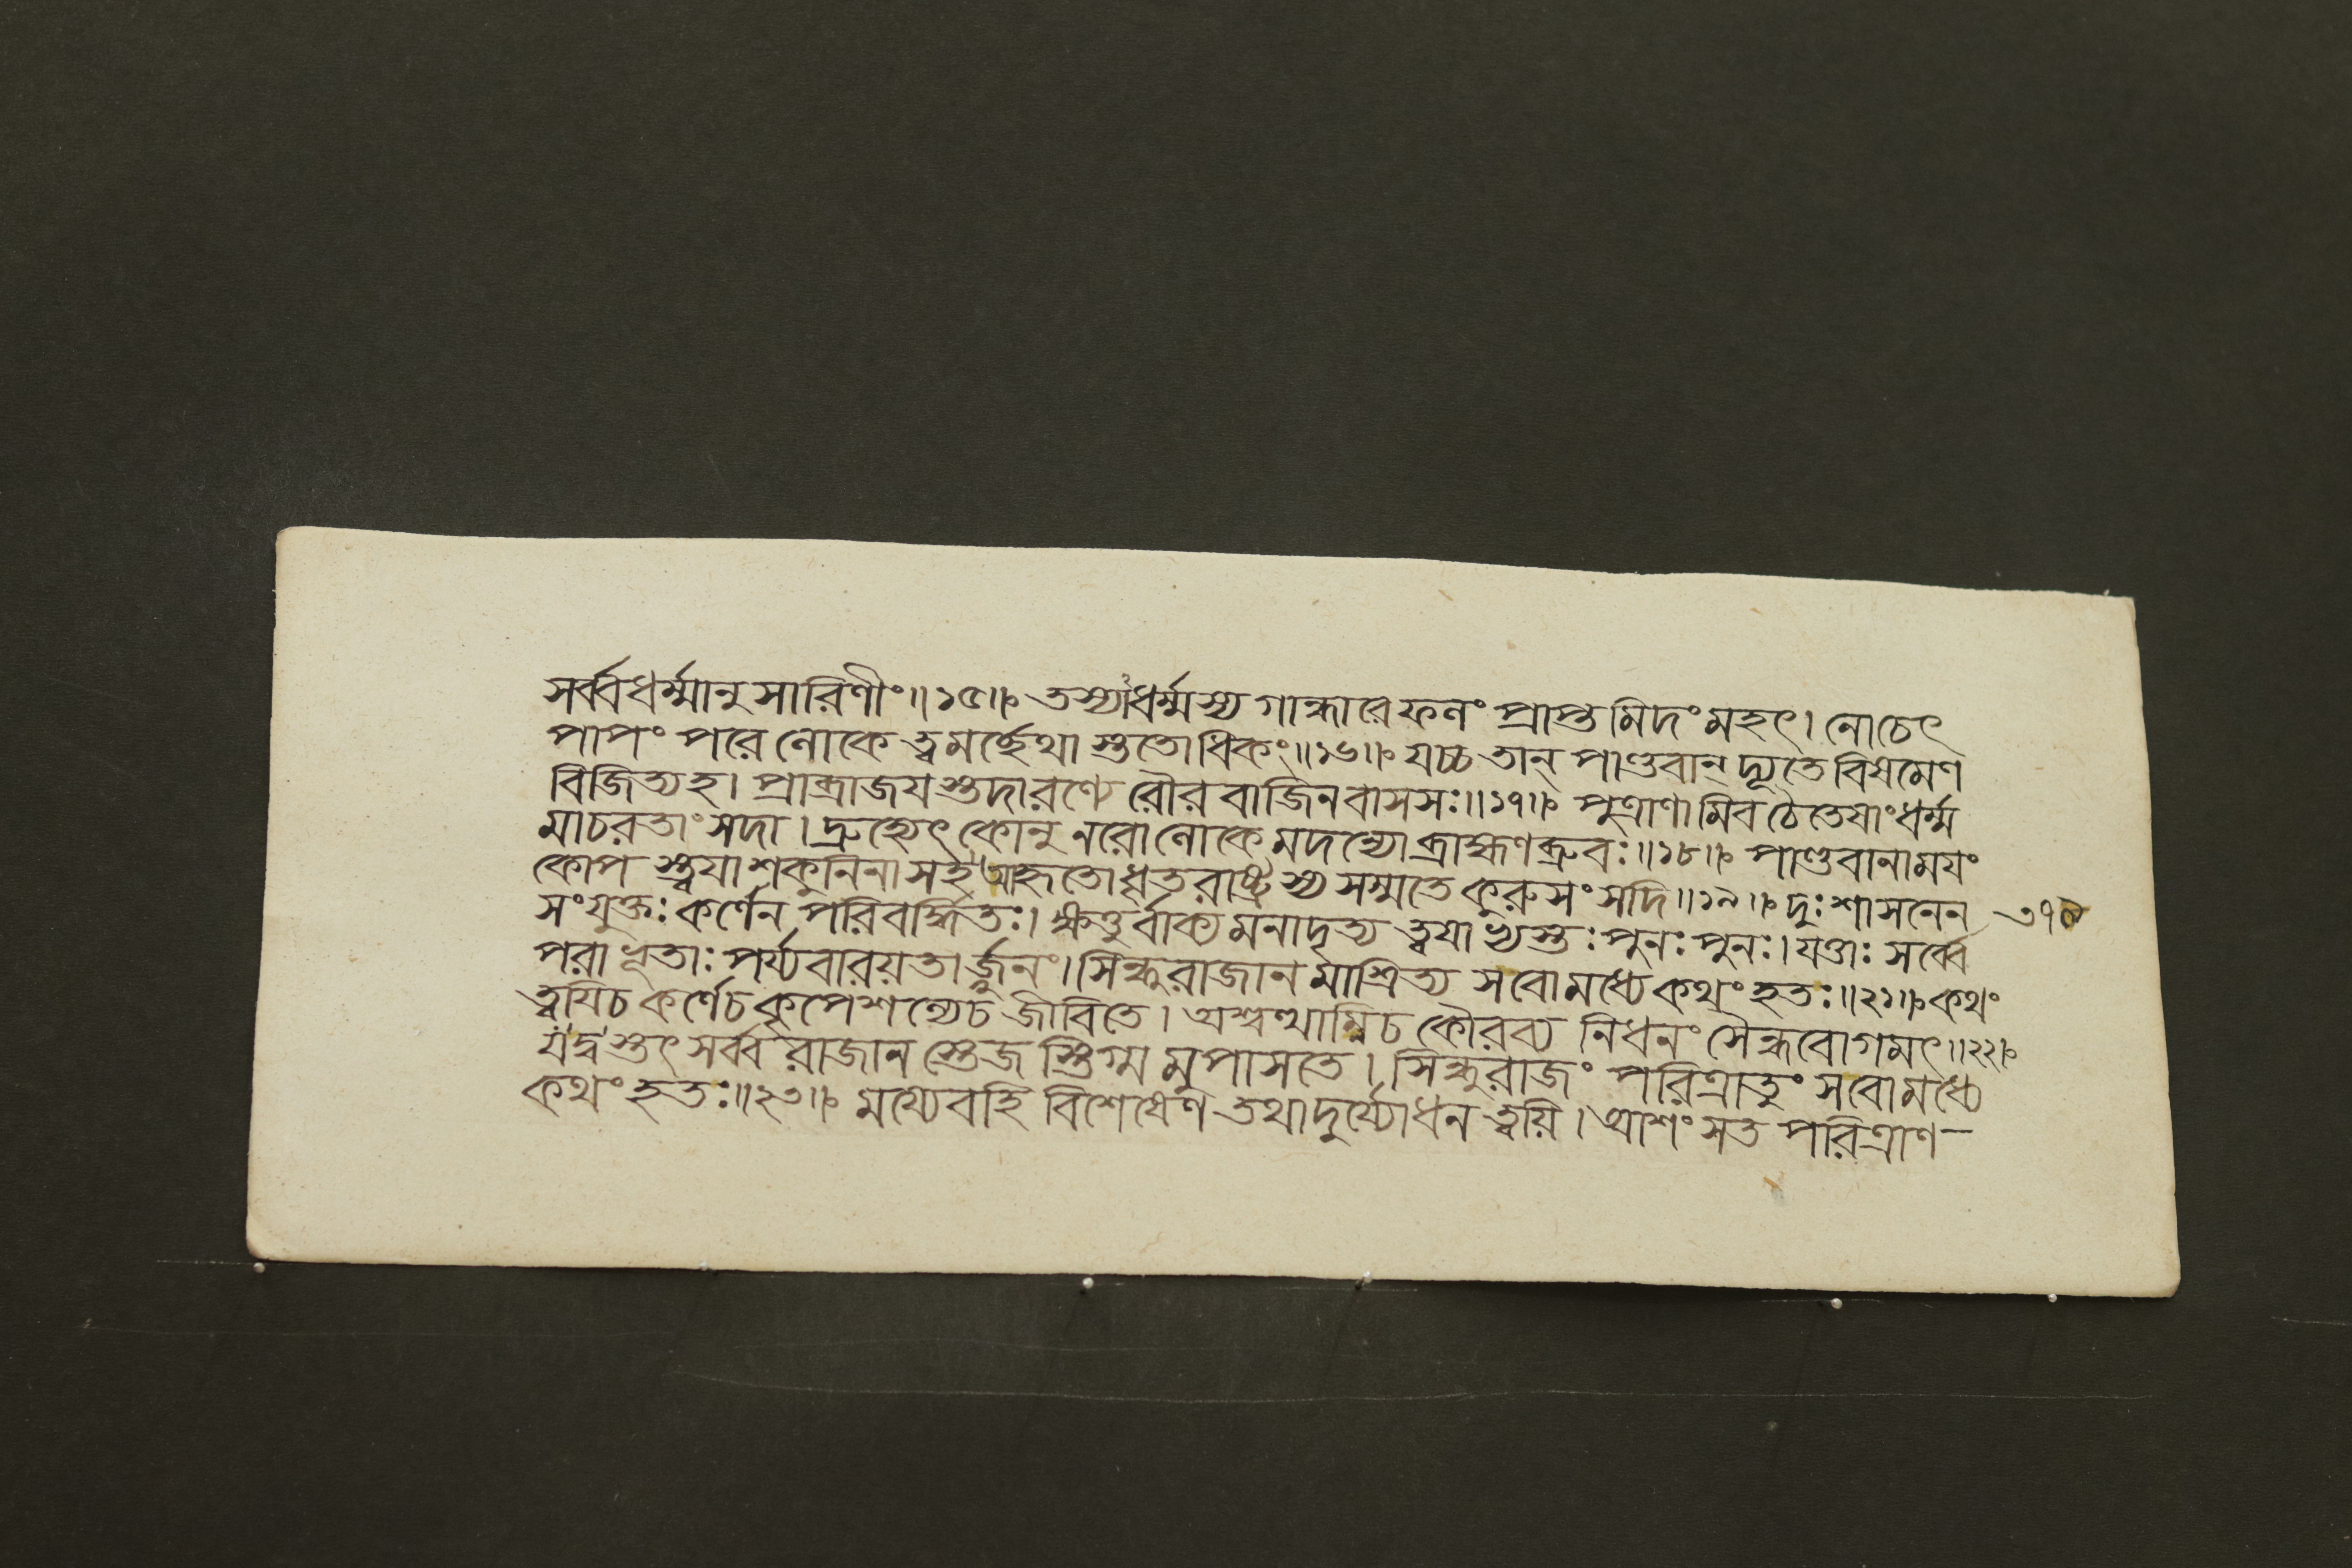 সর্ব্বধর্ম্মানুসারিণীং॥১৫॥ তস্যাধর্ম্মস্য গান্ধারে ফলং প্রাপ্তমিদং মহৎ। নোচেৎ
পাপং পরে লোকে ত্বমর্চ্ছেথাস্ততোধিকং॥১৬॥ যচ্চ তান্ পাণ্ডবান্ দ্যূতে বিষমেণ
বিজিত্যহ। প্রাব্রাজযস্তদারণ্যে রৌরবাজিনবাসসঃ॥১৭॥ পুত্রাণামিব চৈতেষাং ধর্ম্ম
মাচরতাং সদা। দ্রুহ্যেৎ কোনু নরো লোকে মদন্যো ব্রাহ্মণব্রুবঃ॥১৮॥ পাণ্ডবানাময়ং
কোপস্ত্বযা শকুনিনা সহ আহৃতো ধৃতরাষ্ট্রস্য সম্মতে কুরুসংসদি॥১৯॥ দুঃশাসনেন ৩৭৪
সংযুক্তঃ কর্ণেন পরিবর্দ্ধিতঃ। ক্ষত্তুর্বাক্যমনাদৃত্য ত্বযাভ্যস্তঃ পুনঃ পুনঃ। যত্তাঃ সর্ব্বে
পরাভূতাঃ পর্য্যবারয়তার্জ্জুনং। সিন্ধুরাজানমাশ্রিত্য সবোমধ্যে কথং হতঃ॥২১॥ কথং
ত্বযিচ কর্ণেচ কৃপেশল্যেচ জীবিতে। অশ্বত্থাম্নিচ কৌরব্য নিধনং সৈন্ধবোগমৎ॥২২॥
যদ্বস্তৎ সর্ব্বরাজানস্তেজস্তিগ্মমুপাসতে। সিন্ধুরাজং পরিত্রাতুং সবোমধ্যে
কথং হতঃ॥২৩॥ ময্যেবহি বিশেষেণ তথা দুর্য্যোধন ত্বয়ি। আশংসত পরিত্রাণ-